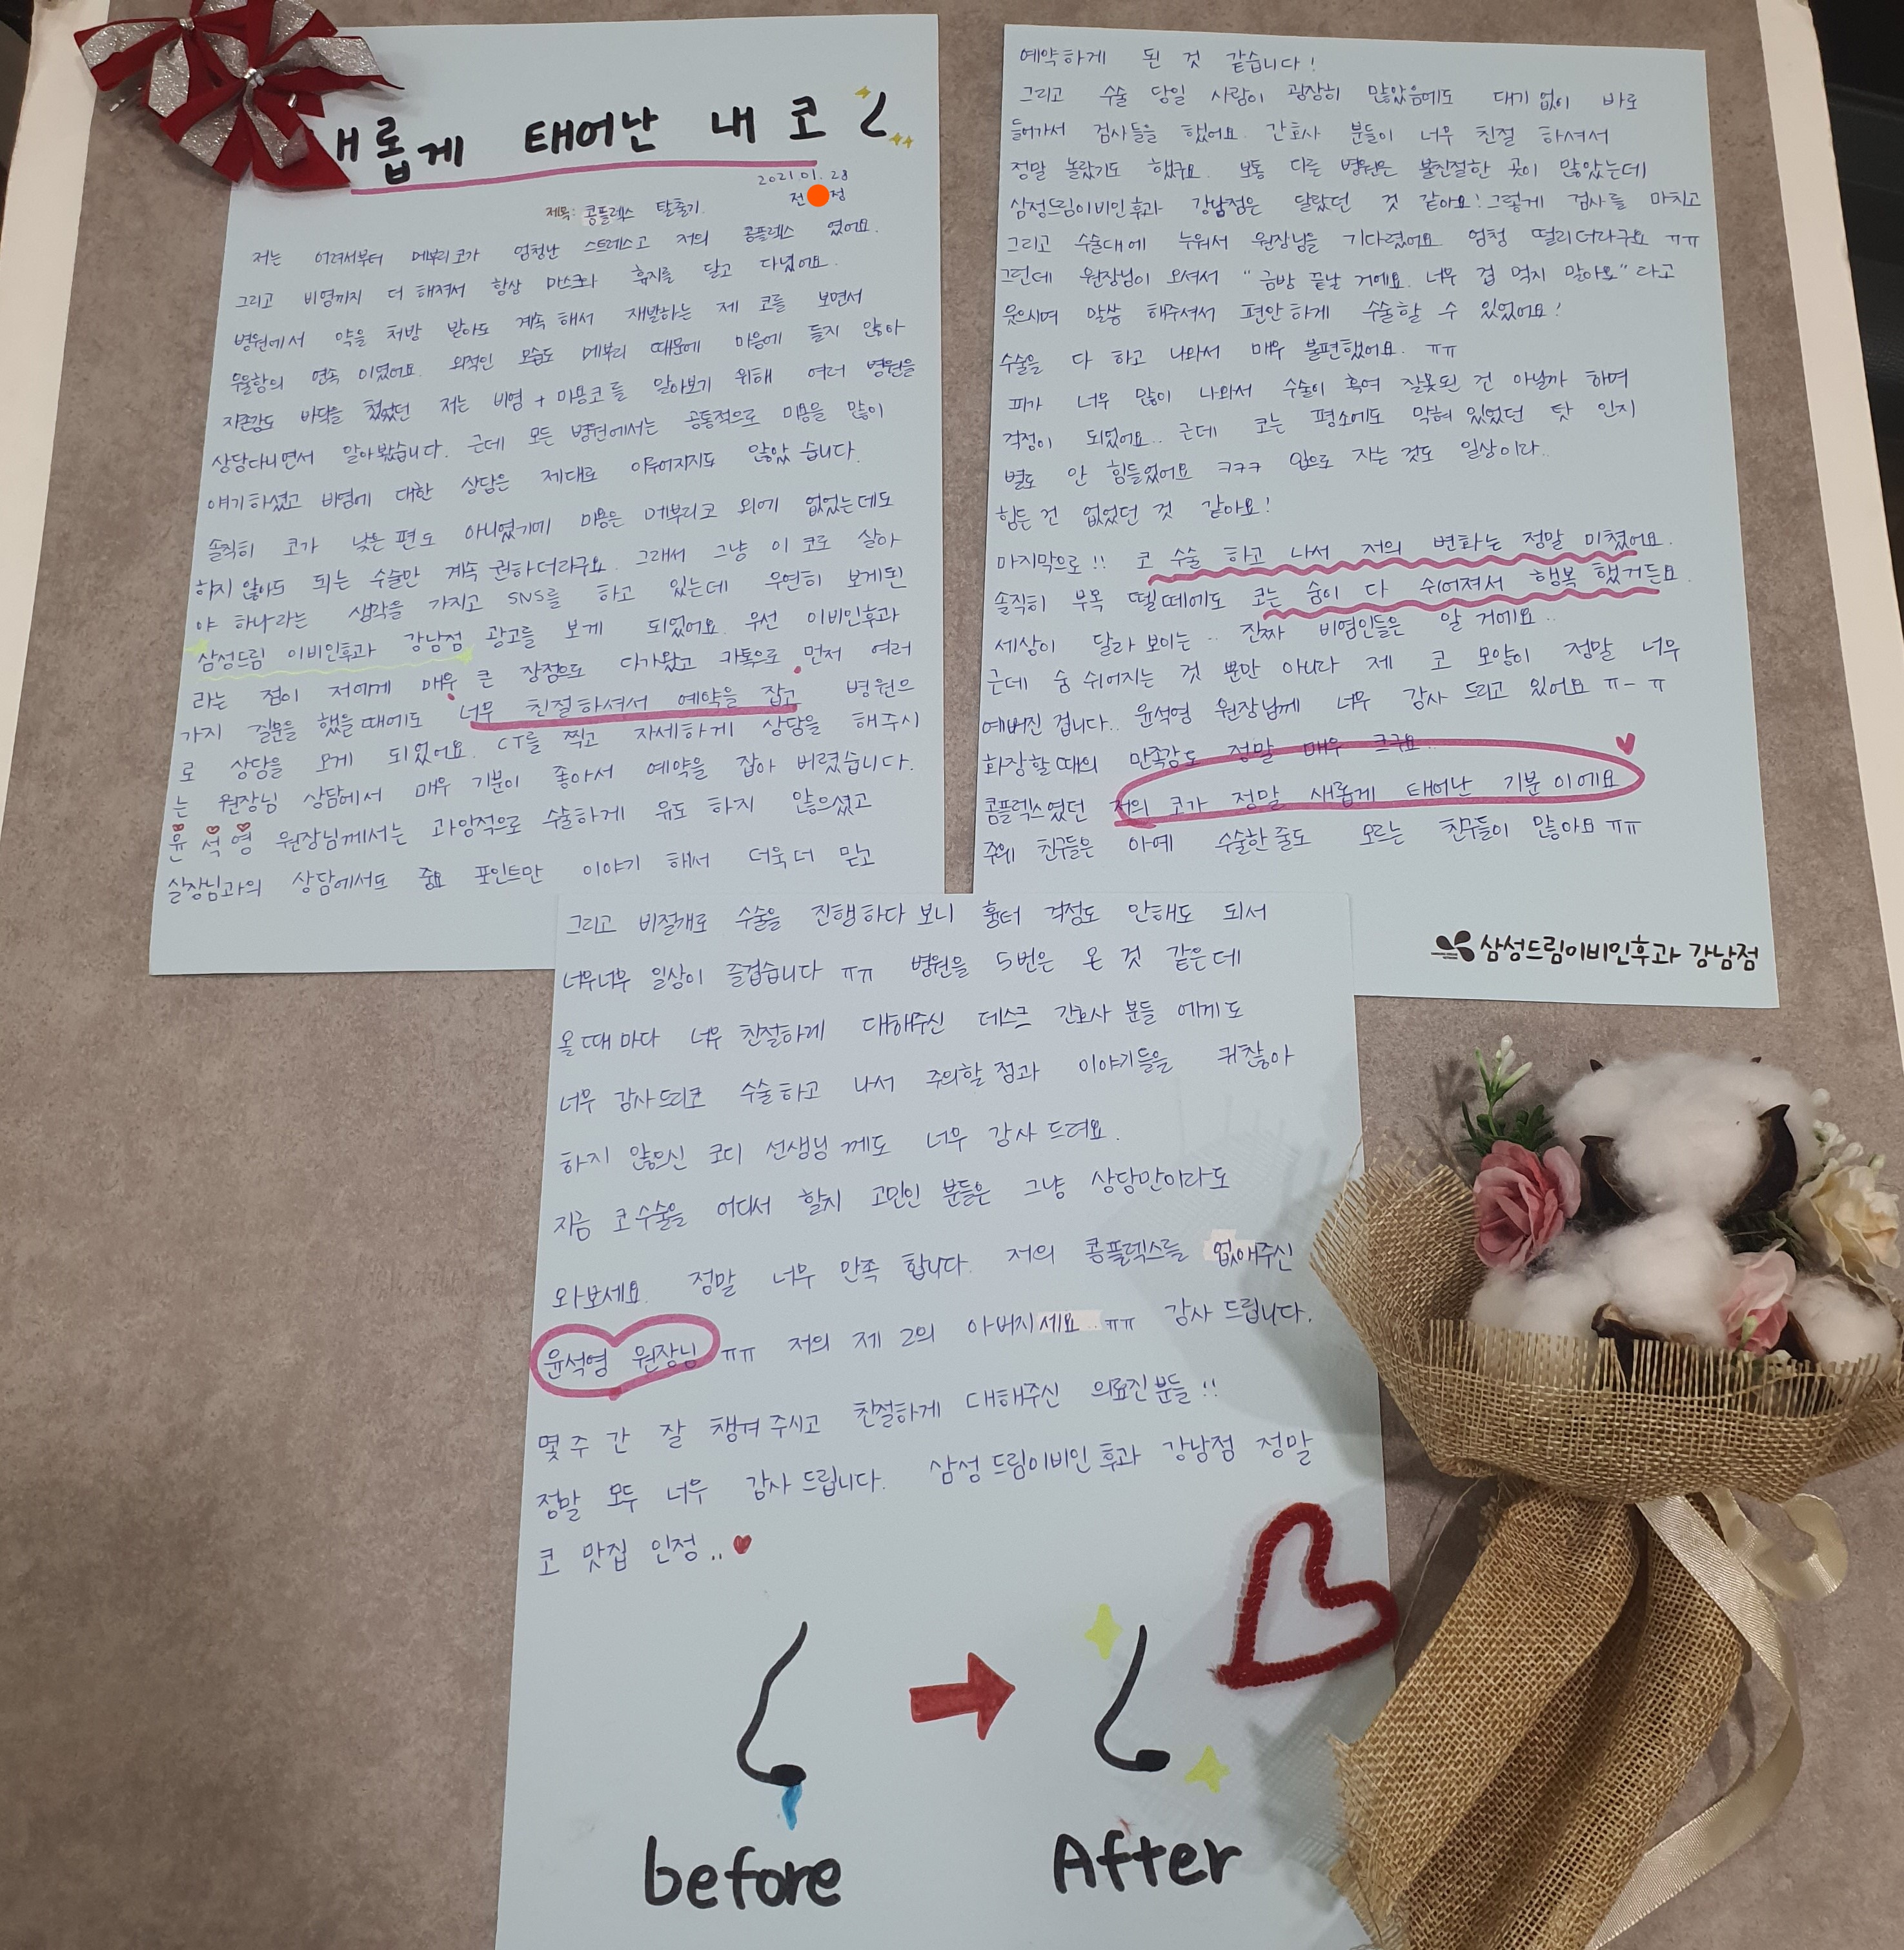 새롭게 태어난 내 코
2021.01.28
전 정
제목: 콤플렉스 탈출기.
저는 어려서부터 메부리코가 엄청난 스트레스고 저의 콤플렉스 였어요.
그리고 비염까지 더 해져서 항상 마스크와 휴지를 달고 다녔어요.
병원에서 약을 처방 받아도 계속 해서 재발하는 제 코를 보면서
우울함의 연속 이였어요. 외적인 모습도 메부리 때문에 마음에 들지 않아
자존감도 바닥을 쳤었던 저는 비염 + 미용코를 알아보기 위해 여러 병원을
상담다니면서 알아봤습니다. 근데 모든 병원에서는 공통적으로 미용을 많이
얘기하셨고 비염에 대한 상담은 제대로 이루어지지도 않았 습니다.
솔직히 코가 낮은 편도 아니였기에 미용은 메부리코 외에 없었는데도
하지 않아도 되는 수술만 계속 권하더라구요. 그래서 그냥 이 코로 살아
야 하나라는 생각을 가지고 SNS를 하고 있는데 우연히 보게된
삼성드림 이비인후과 강남점 광고를 보게 되었어요. 우선 이비인후과
라는 점이 저에게 매우 큰 장점으로 다가왔고 카톡으로 먼저 여러
가지 질문을 했을때에도 너무 친절하셔서 예약을 잡고 병원으
로 상담을 오게 되었어요. CT를 찍고 자세하게 상담을 해주시
는 원장님 상담에서 매우 기분이 좋아서 예약을 잡아 버렸습니다.
윤석영 원장님께서는 과잉적으로 수술하게 유도 하지 않으셨고
실장님과의 상담에서도 중요 포인트만 이야기 해서 더욱더 믿고
예약하게 된 것 같습니다!
그리고 수술 당일 사람이 굉장히 많았음에도 대기 없이 바로
들어가서 검사들을 했어요. 간호사 분들이 너무 친절 하셔서
정말 놀랐기도 했구요. 보통 다른 병원은 불친절한 곳이 많았는데
삼성드림이비인후과 강남점은 달랐던 것 같아요! 그렇게 검사를 마치고
그리고 수술대에 누워서 원장님을 기다렸어요. 엄청 떨리더라구요 ㅠㅠ
그런데 원장님이 오셔서 "금방 끝날 거에요. 너무 겁 먹지 말아요" 라고
웃으시며 말씀 해주셔서 편안하게 수술할 수 있었어요!
수술을 다 하고 나와서 매우 불편했어요. ㅠㅠ
피가 너무 많이 나와서 수술이 혹여 잘못된 건 아닐까 하며
걱정이 되었어요.. 근데 코는 평소에도 막혀 있었던 탓 인지
별로 안 힘들었어요 ㅋㅋㅋ 입으로 자는 것도 일상이라..
힘든 건 없었던 것 같아요!
마지막으로!! 코 수술 하고 나서 저의 변화는 정말 미쳤어요.
솔직히 부목 뗄때에도 코는 숨이 다 쉬어져서 행복 했거든요.
세상이 달라 보이는.. 진짜 비염인들은 알 거에요..
근데 숨 쉬어지는 것 뿐만 아니라 제 코 모양이 정말 너무
예뻐진 겁니다.. 윤석영 원장님께 너무 감사 드리고 있어요 ㅠ-ㅠ
화장할때의 만족감도 정말 매우 크구요..
콤플렉스였던 저의 코가 정말 새롭게 태어난 기분 이에요
주위 친구들은 아예 수술한줄도 모르는 친구들이 많아요 ㅠㅠ
삼성드림이비인후과 강남점
그리고 비절개로 수술을 진행하다 보니 흉터 걱정도 안해도 되서
너무너무 일상이 즐겁습니다 ㅠㅠ 병원을 5번은 온 것 같은데
올때 마다 너무 친절하게 대해주신 데스크 간호사 분들 에게도
너무 감사드리고 수술하고 나서 주의할 점과 이야기들을 귀찮아
하지 않으신 코디 선생님 께도 너무 감사 드려요.
지금 코수술을 어디서 할지 고민인 분들은 그냥 상담만이라도
와보세요. 정말 너무 만족 합니다. 저의 콤플렉스를 없애주신
윤석영 원장님 ㅠㅠ 저의 제 2의 아버지세요.. ㅠㅠ 감사 드립니다.
몇 주 간 잘 챙겨 주시고 친절하게 대해주신 의료진분들!!
정말 모두 너무 감사 드립니다. 삼성드림이비인후과 강남점 정말
코 맛집 인정..
before
After